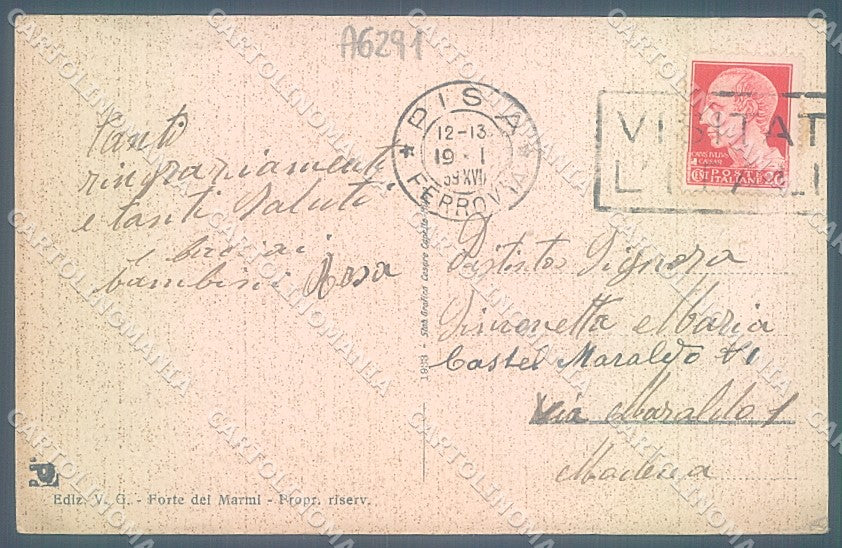 A6291
PISA
12-13
19 · I
39 XVII
FERROVIA
VISITAT
L
CAIVS IVLIVS
CAESAR
POSTE
ITALIANE
CENT 20
Tanti
ringraziamenti
e tanti saluti
e baci ai
bambini Rosa
Distinta Signora
Simonetta Maria
Castel Maraldo 41
Via Maraldo 1
Modena
1933 - Stab Grafico Cesare Capello
Ediz. V. G. - Forte dei Marmi - Propr. riserv.
CARTOLINOMANIA